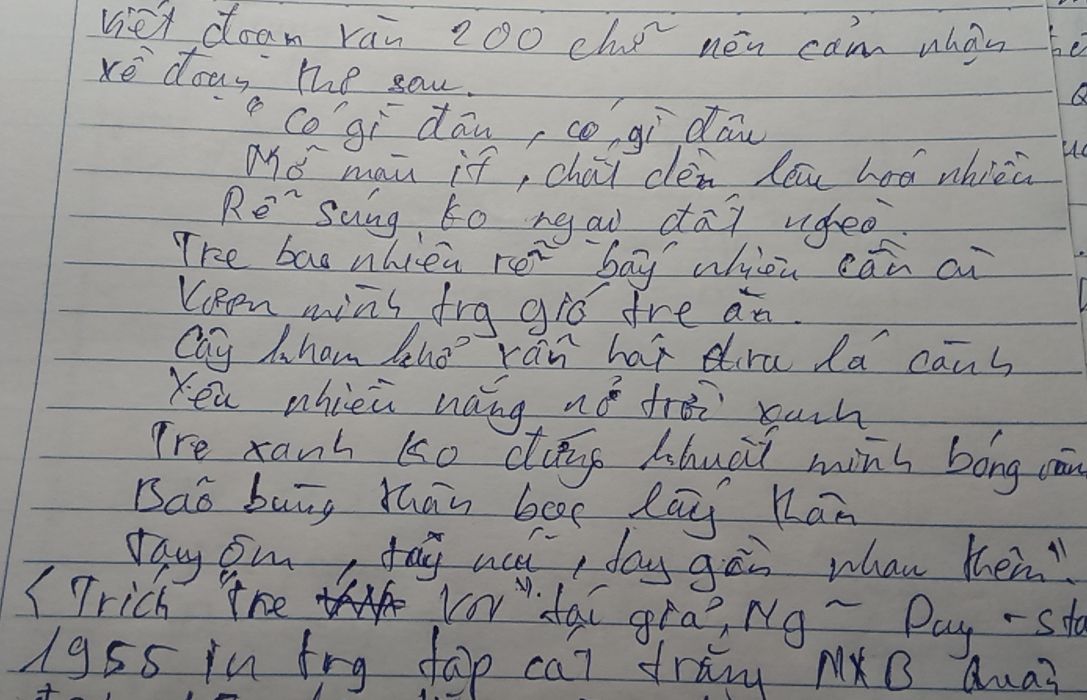 viết đoạn văn 200 chữ nêu cảm nhận
về đoạn thơ sau.
"Có gì đâu, có gì đâu
Mỡ màu ít, chất dồn lâu hoá nhiều
Rễ siêng ko ngại đất nghèo
Tre bao nhiêu rễ bấy nhiêu cần cù
Vươn mình trg gió tre
Cây kham khổ vẫn hát dưa lá cành
Yêu nhiều nắng nỏ trời xanh
Tre xanh ko đứng khuất mình bóng râm
Bão bùng thân bọc lấy thân
tay ôm, tay níu, tay gần nhau thêm".
(Trích "Tre VN". tác giả, Ng~ Duy -
1955 in trg tập cát trắng NXB Quân